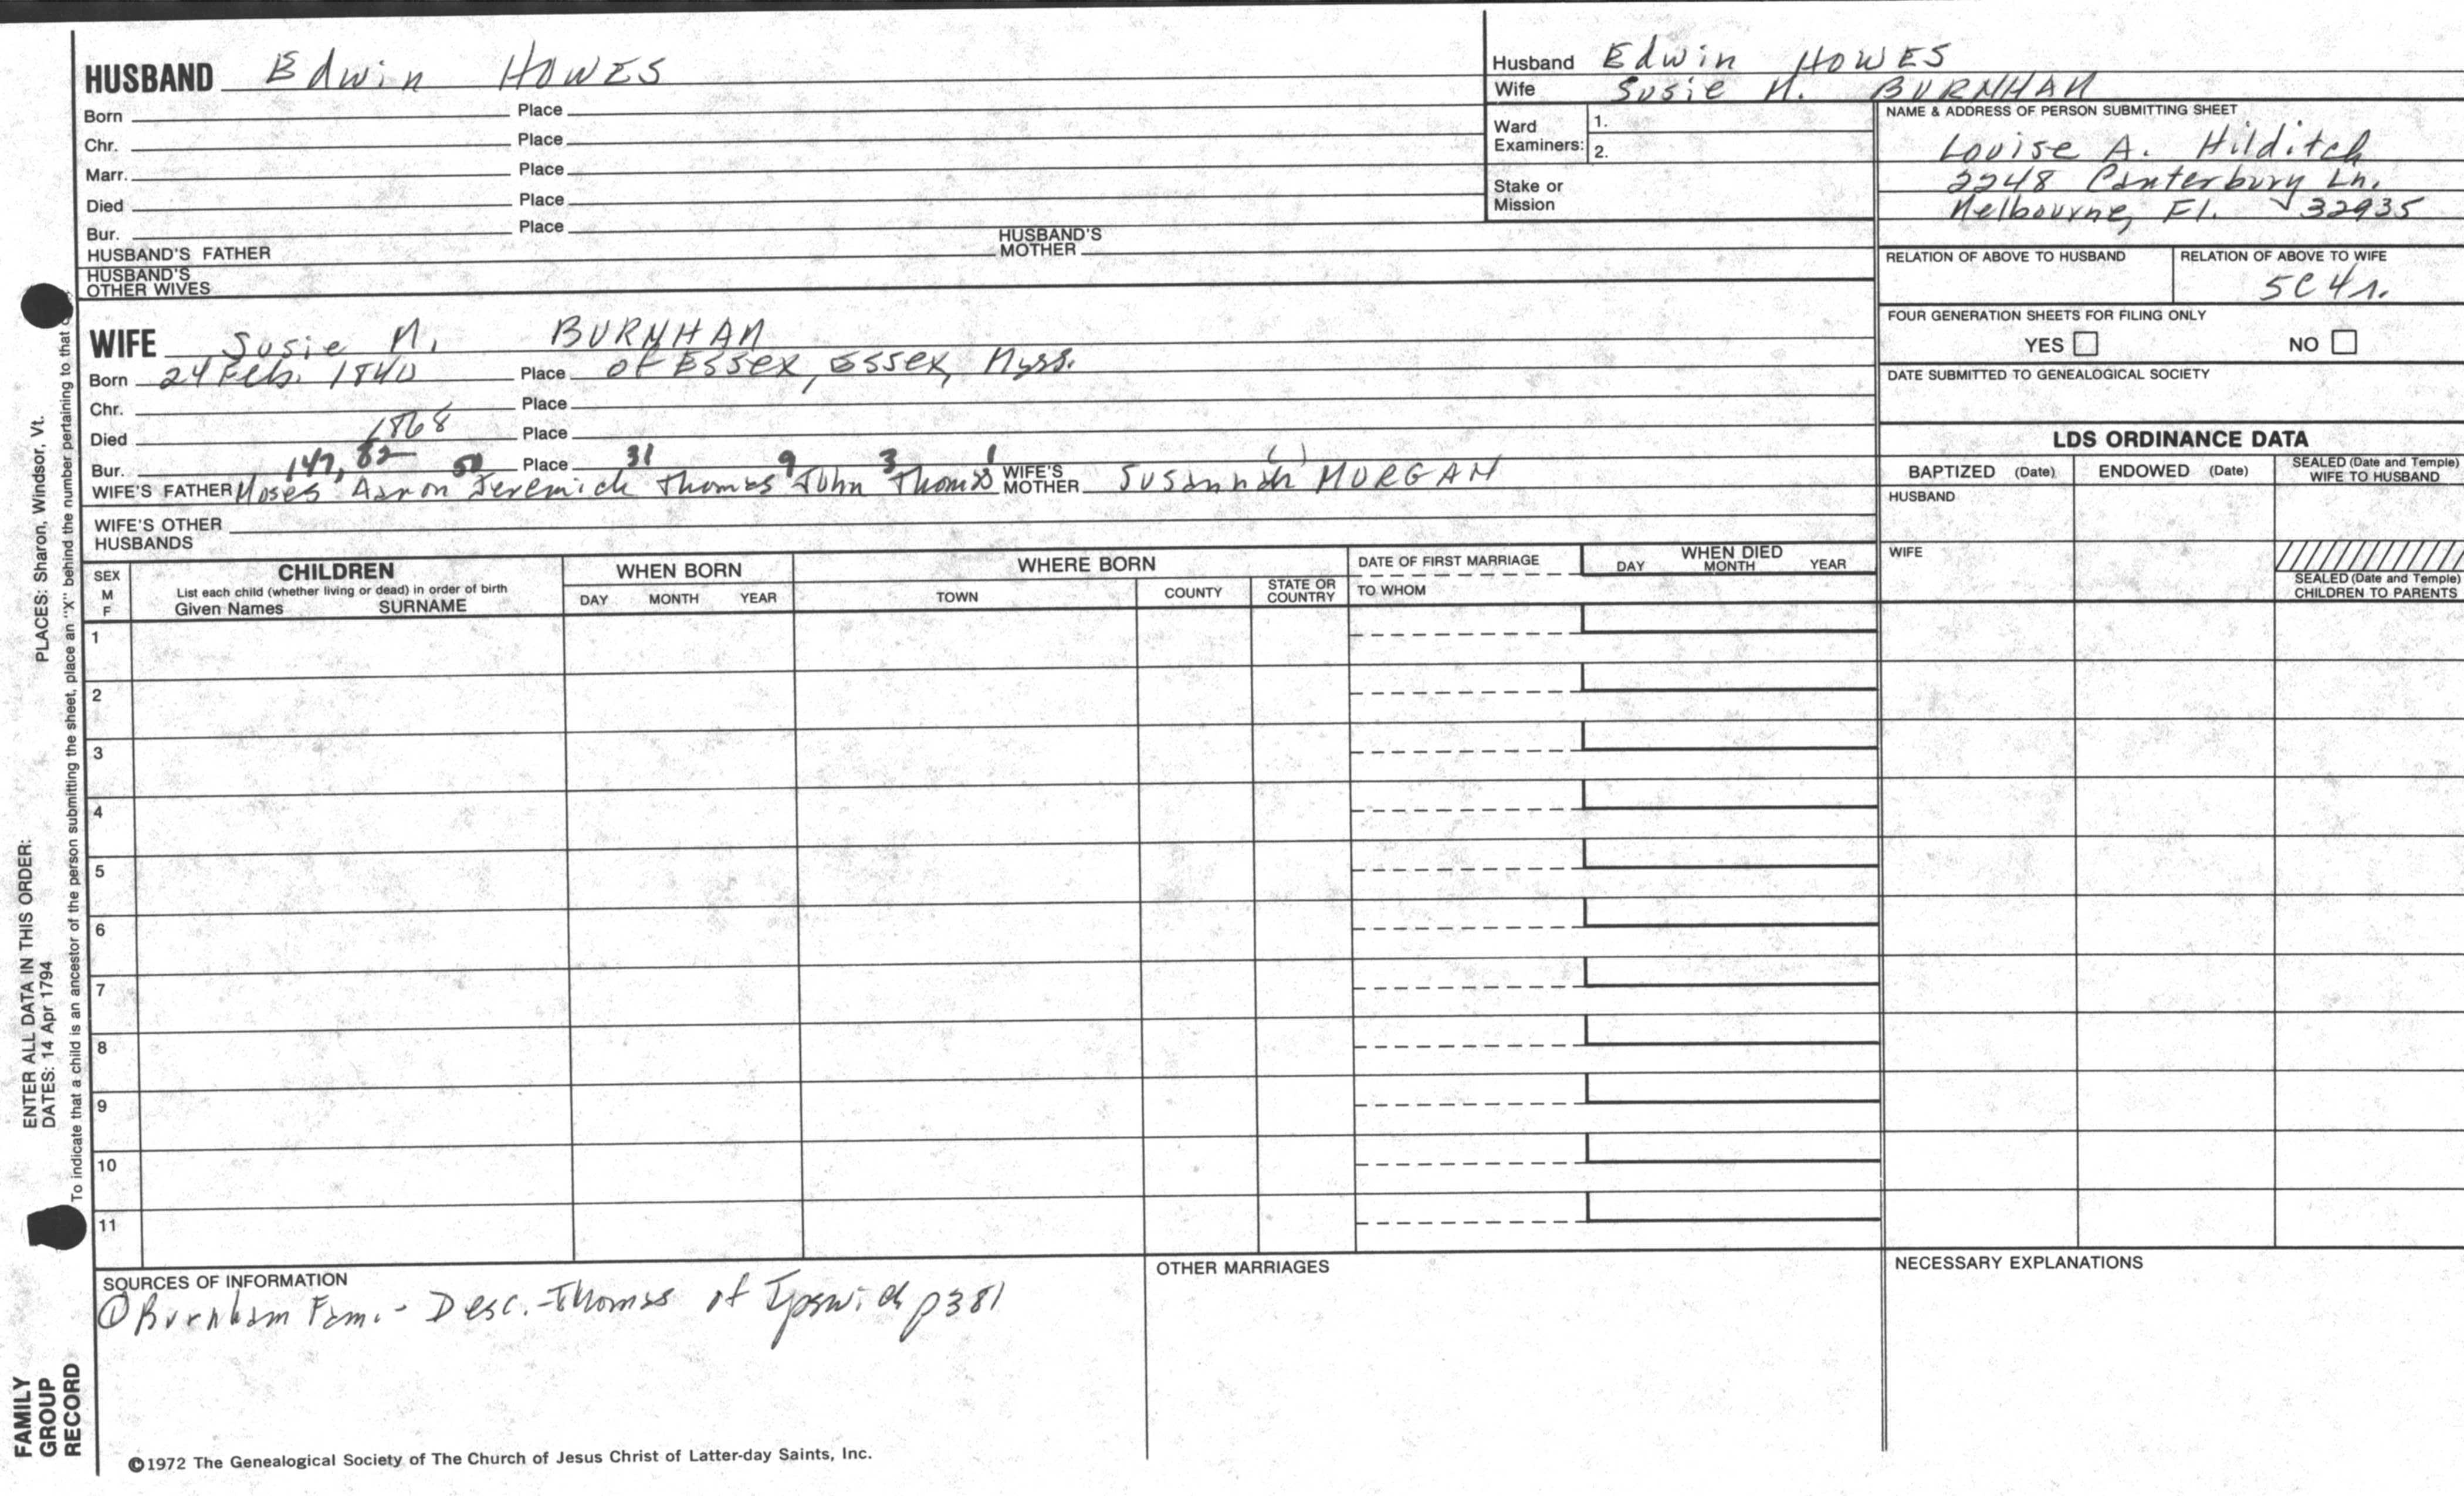 HUSBAND Edwin HOWES
Born Place
Chr. Place
Marr. Place
Died Place
Bur. Place
HUSBAND'S FATHER HUSBAND'S MOTHER
HUSBAND'S OTHER WIVES
Husband Edwin HOWES
Wife Susie M. BURNHAM
Ward Examiners: 1.
2.
Stake or Mission
NAME & ADDRESS OF PERSON SUBMITTING SHEET
Louise A. Hilditch
2248 Canterbury Ln.
Melbourne, Fl. 32935
RELATION OF ABOVE TO HUSBAND RELATION OF ABOVE TO WIFE
5C4r.
FOUR GENERATION SHEETS FOR FILING ONLY
YES NO
DATE SUBMITTED TO GENEALOGICAL SOCIETY
WIFE Susie M. BURNHAM
Born 24 Feb. 1840 Place of Essex, Essex, Mass.
Chr. Place
Died 1868 Place
Bur. Place
147, 82 50 31 9 3 1
WIFE'S FATHER Moses Aaron Jeremiah Thomas John Thomas WIFE'S MOTHER Susannah ( ) MORGAN
WIFE'S OTHER HUSBANDS
LDS ORDINANCE DATA
BAPTIZED (Date) ENDOWED (Date) SEALED (Date and Temple) WIFE TO HUSBAND
HUSBAND
WIFE
SEALED (Date and Temple) CHILDREN TO PARENTS
SEX M F
CHILDREN
List each child (whether living or dead) in order of birth
Given Names SURNAME
WHEN BORN
DAY MONTH YEAR
WHERE BORN
TOWN COUNTY STATE OR COUNTRY
DATE OF FIRST MARRIAGE
TO WHOM
WHEN DIED
DAY MONTH YEAR
1
2
3
4
5
6
7
8
9
10
11
SOURCES OF INFORMATION
① Burnham Fam. - Desc. - Thomas of Ipswich p381
OTHER MARRIAGES
NECESSARY EXPLANATIONS
©1972 The Genealogical Society of The Church of Jesus Christ of Latter-day Saints, Inc.
FAMILY GROUP RECORD
ENTER ALL DATA IN THIS ORDER:
DATES: 14 Apr 1794 PLACES: Sharon, Windsor, Vt.
To indicate that a child is an ancestor of the person submitting the sheet, place an "X" behind the number pertaining to that